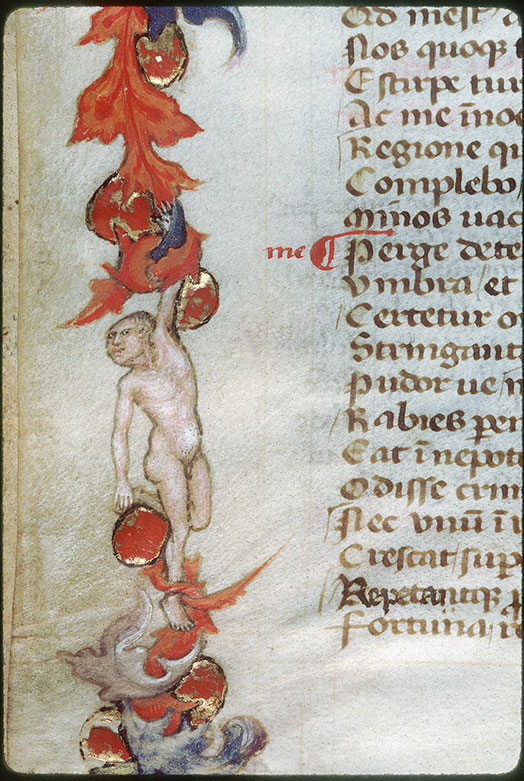 Qd mest a
Nos quoqꝫ t
E stirpe tur
Ac me ī̄noc
Regione qu
Complebo
Minos uac
me ¶ Perge dete
Vmbra / et
Certetur o
Stringant
Pudor ue m
Rabies paren
Eat ī nepot
Odisse crim
Nec vnū ī
Crescat / sup
Repetantqꝫ p
Fortuna r